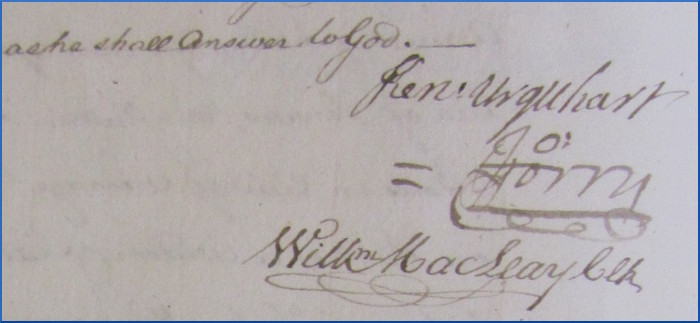 as he shall Answer to God. —
Ken: Urquhart
= Jo: Gorry
Willm MacLeay Clk